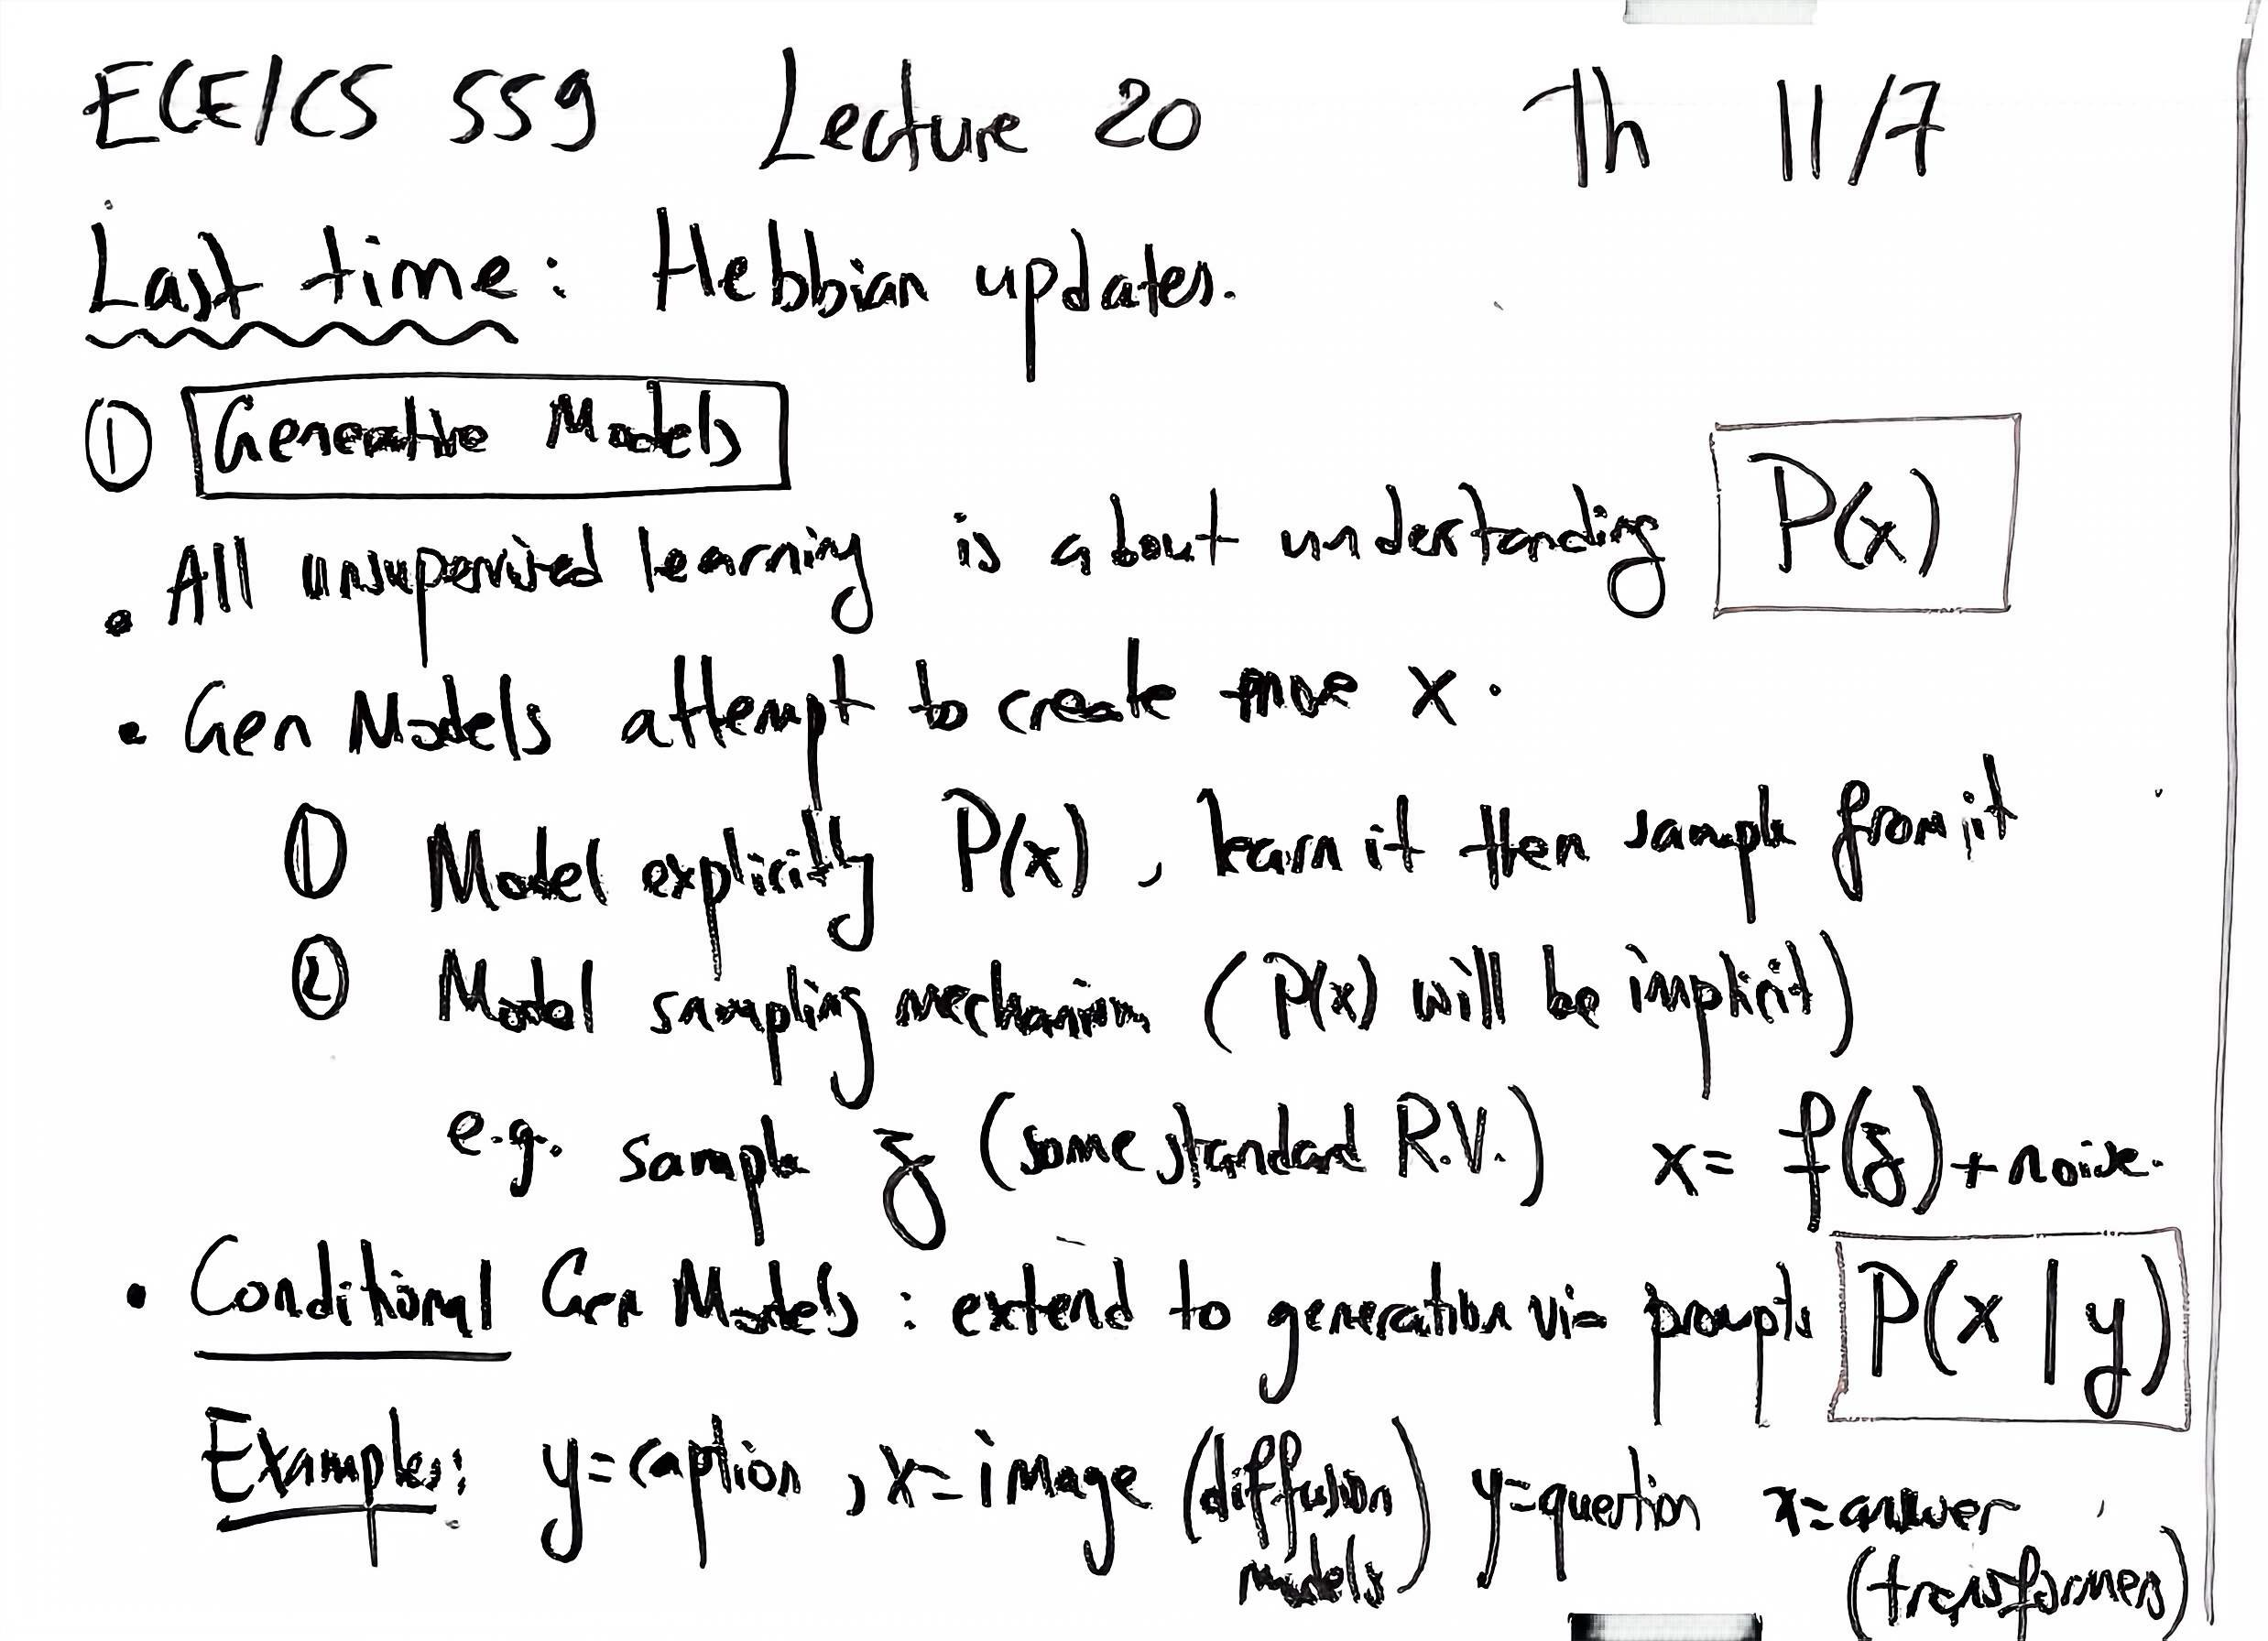 ECE/CS 559 Lecture 20 Th 11/7
Last time: Hebbian updates.
① Generative Models
• All unsupervised learning is about understanding P(x)
• Gen Models attempt to create more x.
① Model explicitly P(x), learn it then sample from it
② Model sampling mechanism (P(x) will be implicit)
e.g. sample z (some standard R.V.) x = f(z) + noise.
• Conditional Gen Models: extend to generation via prompts P(x | y)
Examples: y=caption, x=image (diffusion models) y=question x=answer (transformers)